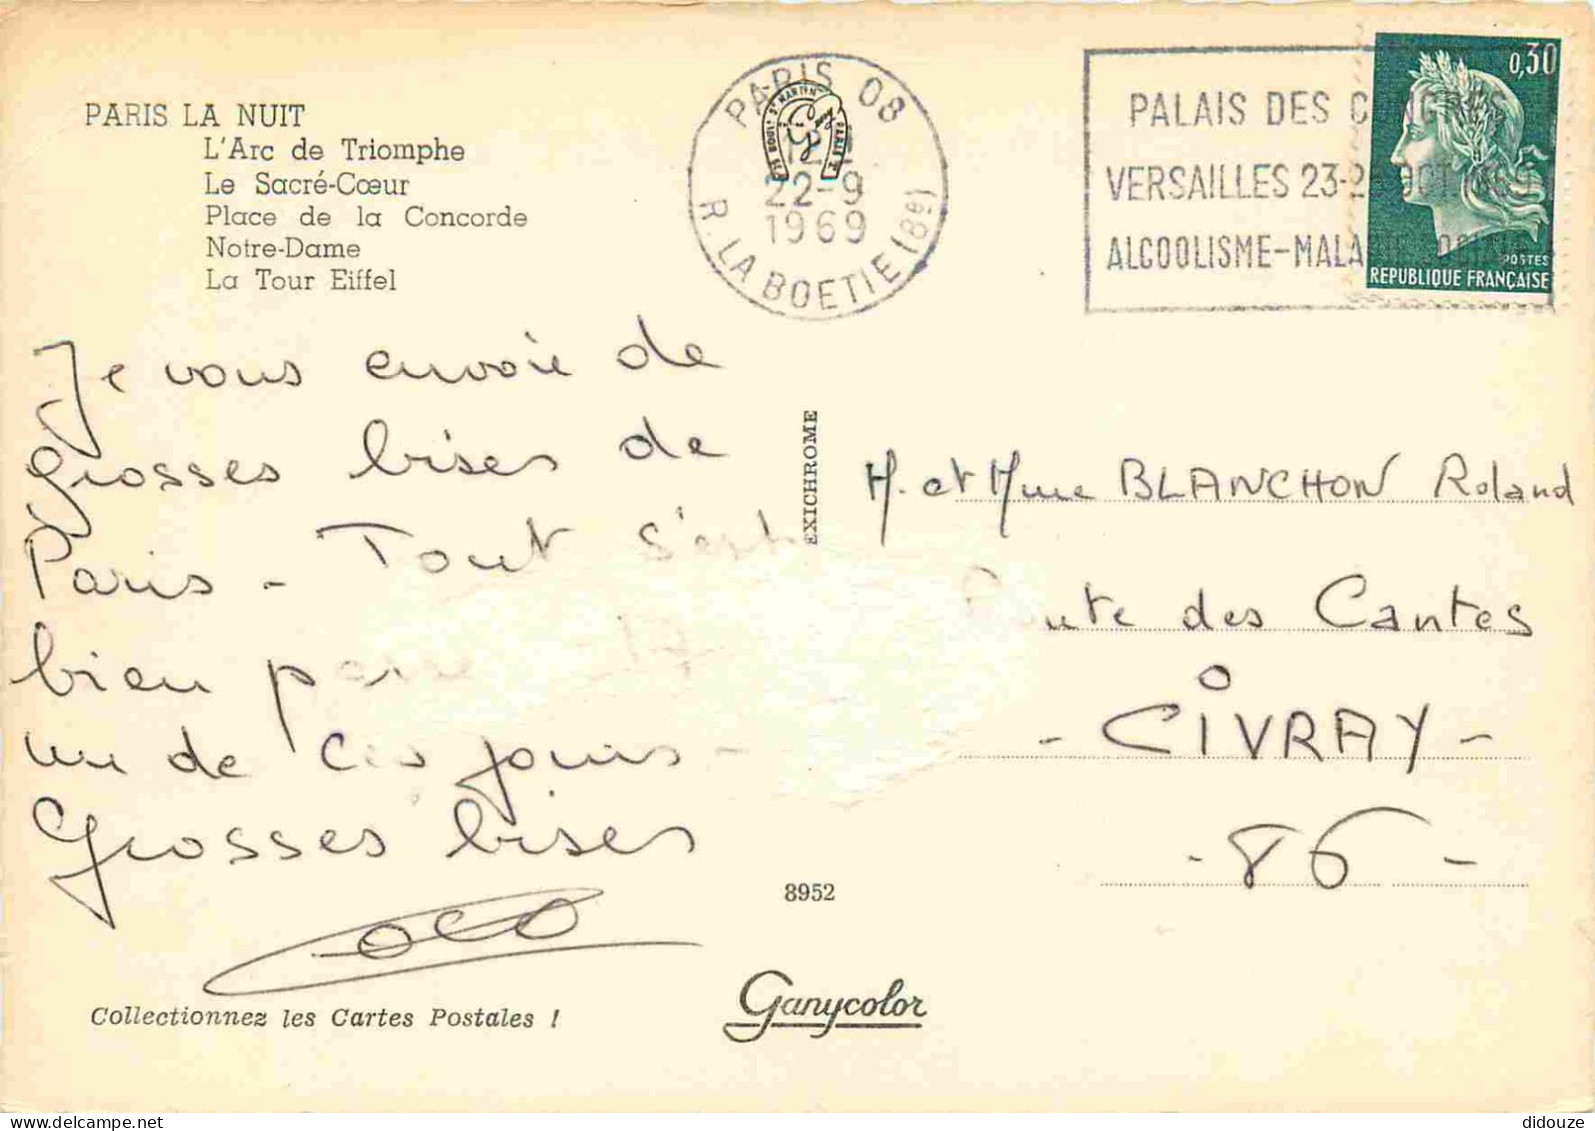 PARIS LA NUIT
L'Arc de Triomphe
Le Sacré-Cœur
Place de la Concorde
Notre-Dame
La Tour Eiffel
PARIS 08
22-9
1969
R. LA BOETIE (8e)
PALAIS DES
VERSAILLES 23-
ALCOOLISME-
0,30
POSTES
REPUBLIQUE FRANÇAISE
Je vous envoie de
grosses bises de
Paris - Tout s'est
bien
de ces jours -
Grosses bises
EXICHROME
M. et Mme BLANCHON Roland
des Cantes
- CIVRAY -
- 86 -
8952
Collectionnez les Cartes Postales !
Ganycolor
didouze